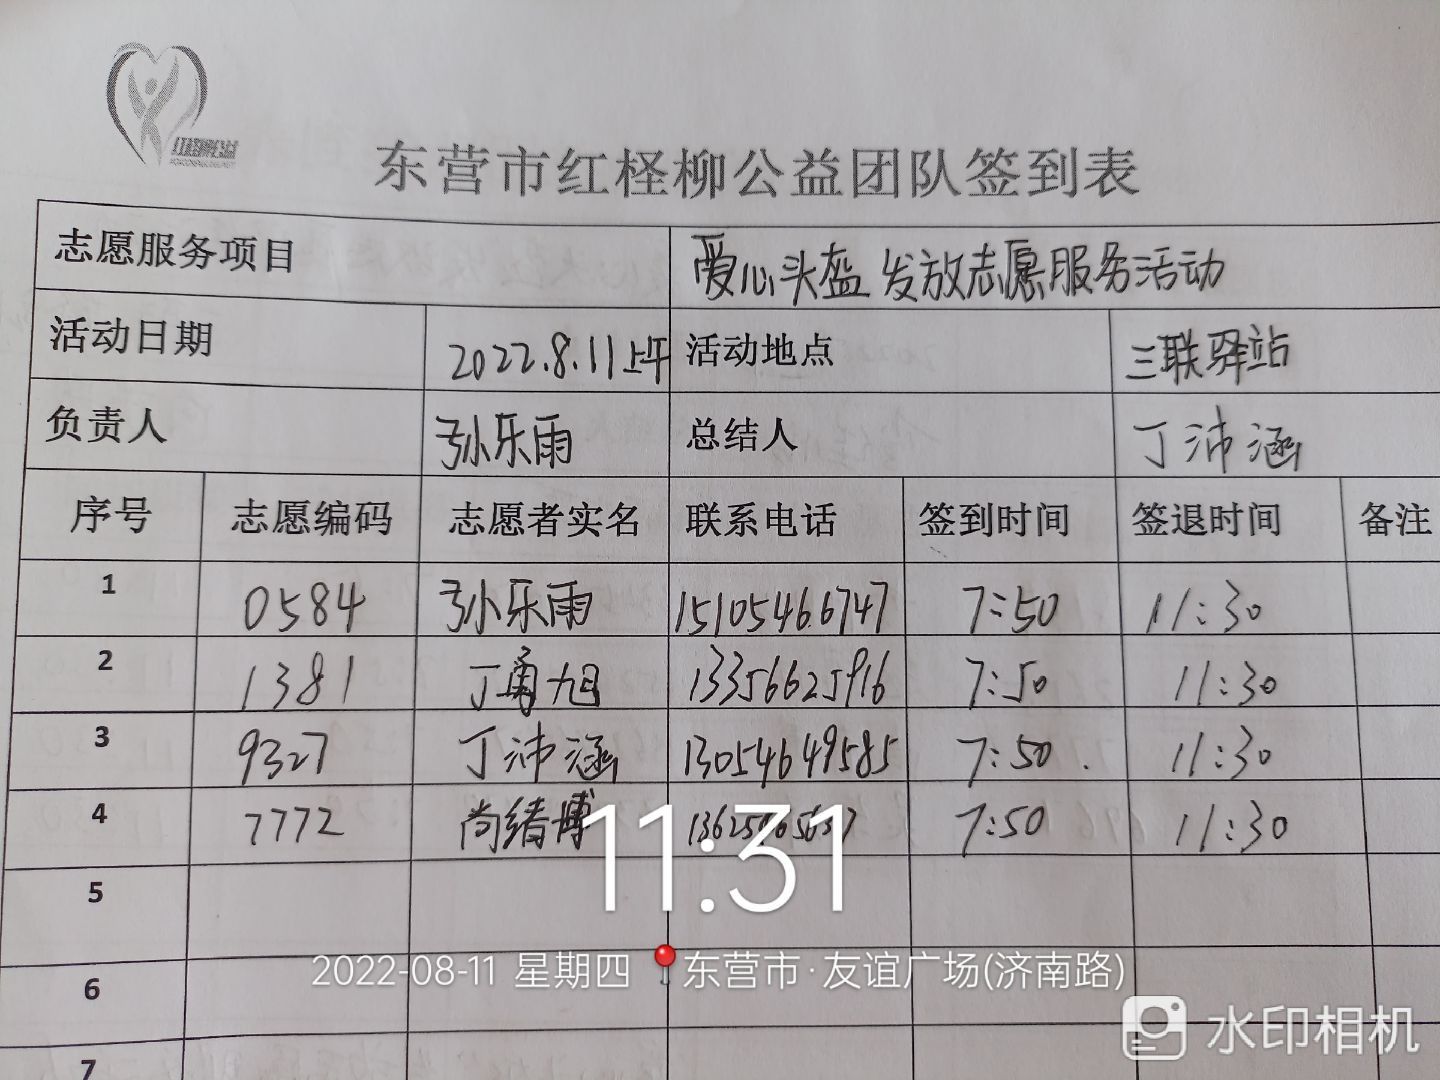 东营市红柽柳公益团队签到表
志愿服务项目 爱心头盔发放志愿服务活动
活动日期 2022.8.11上午 活动地点 三联驿站
负责人 孙乐雨 总结人 丁沛涵
序号 志愿编码 志愿者实名 联系电话 签到时间 签退时间 备注
1 0584 孙乐雨 15105466747 7:50 11:30
2 1381 丁勇旭 13356625916 7:50 11:30
3 9327 丁沛涵 13054649585 7:50 11:30
4 7772 尚绪博 7:50 11:30
11:31
5
2022-08-11 星期四 东营市·友谊广场(济南路)
6
水印相机
7